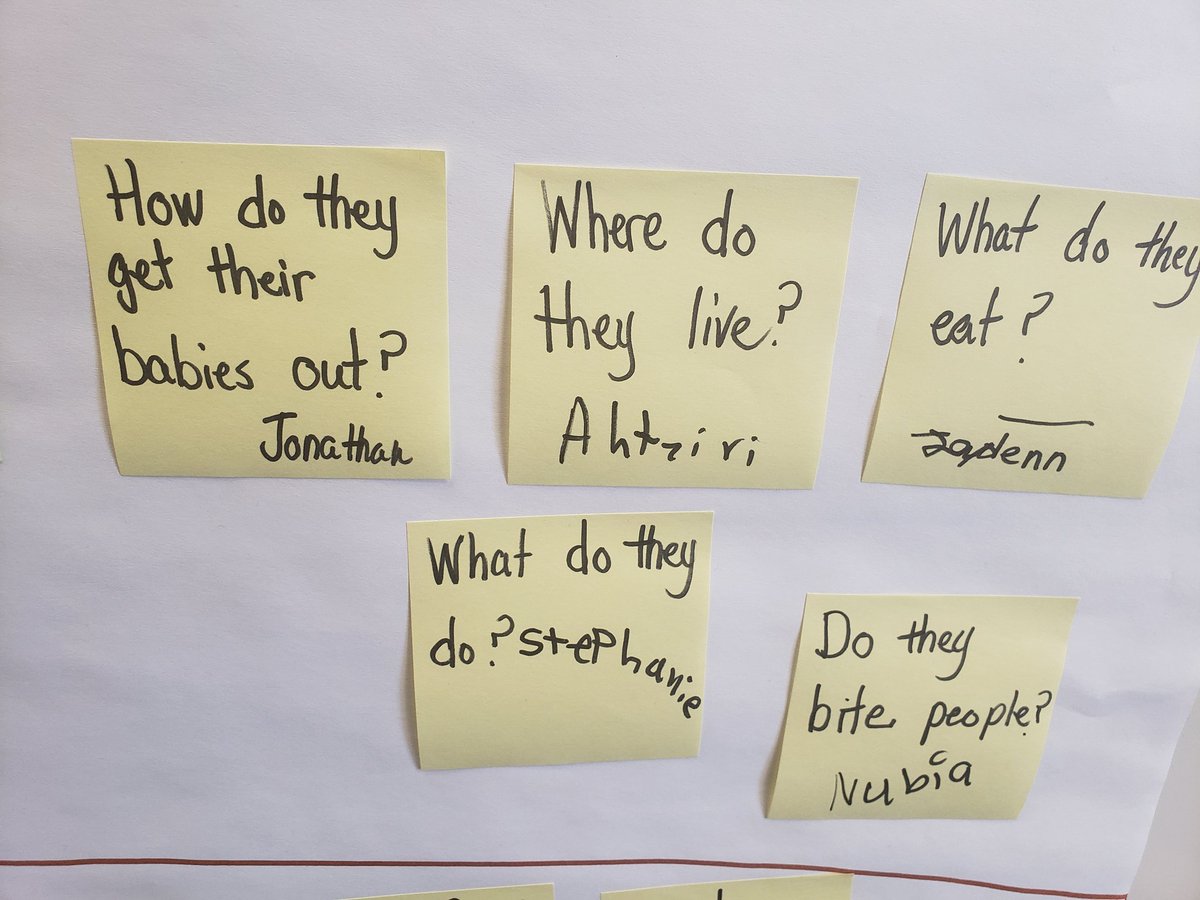 How do they
get their
babies out?
Jonathan
Where do
they live?
Ahtziri
What do they
eat?
Jaydenn
What do they
do? stePhanie
Do they
bite people?
Nubia